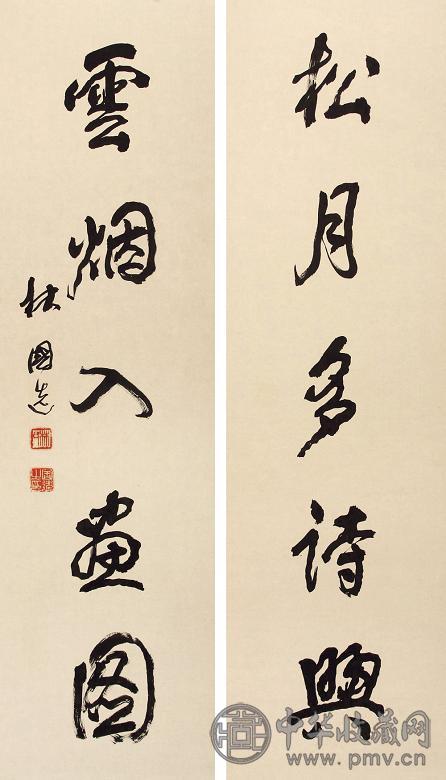 松月多诗興
雲烟入畫图
國
中华收藏网
www.pmv.cn